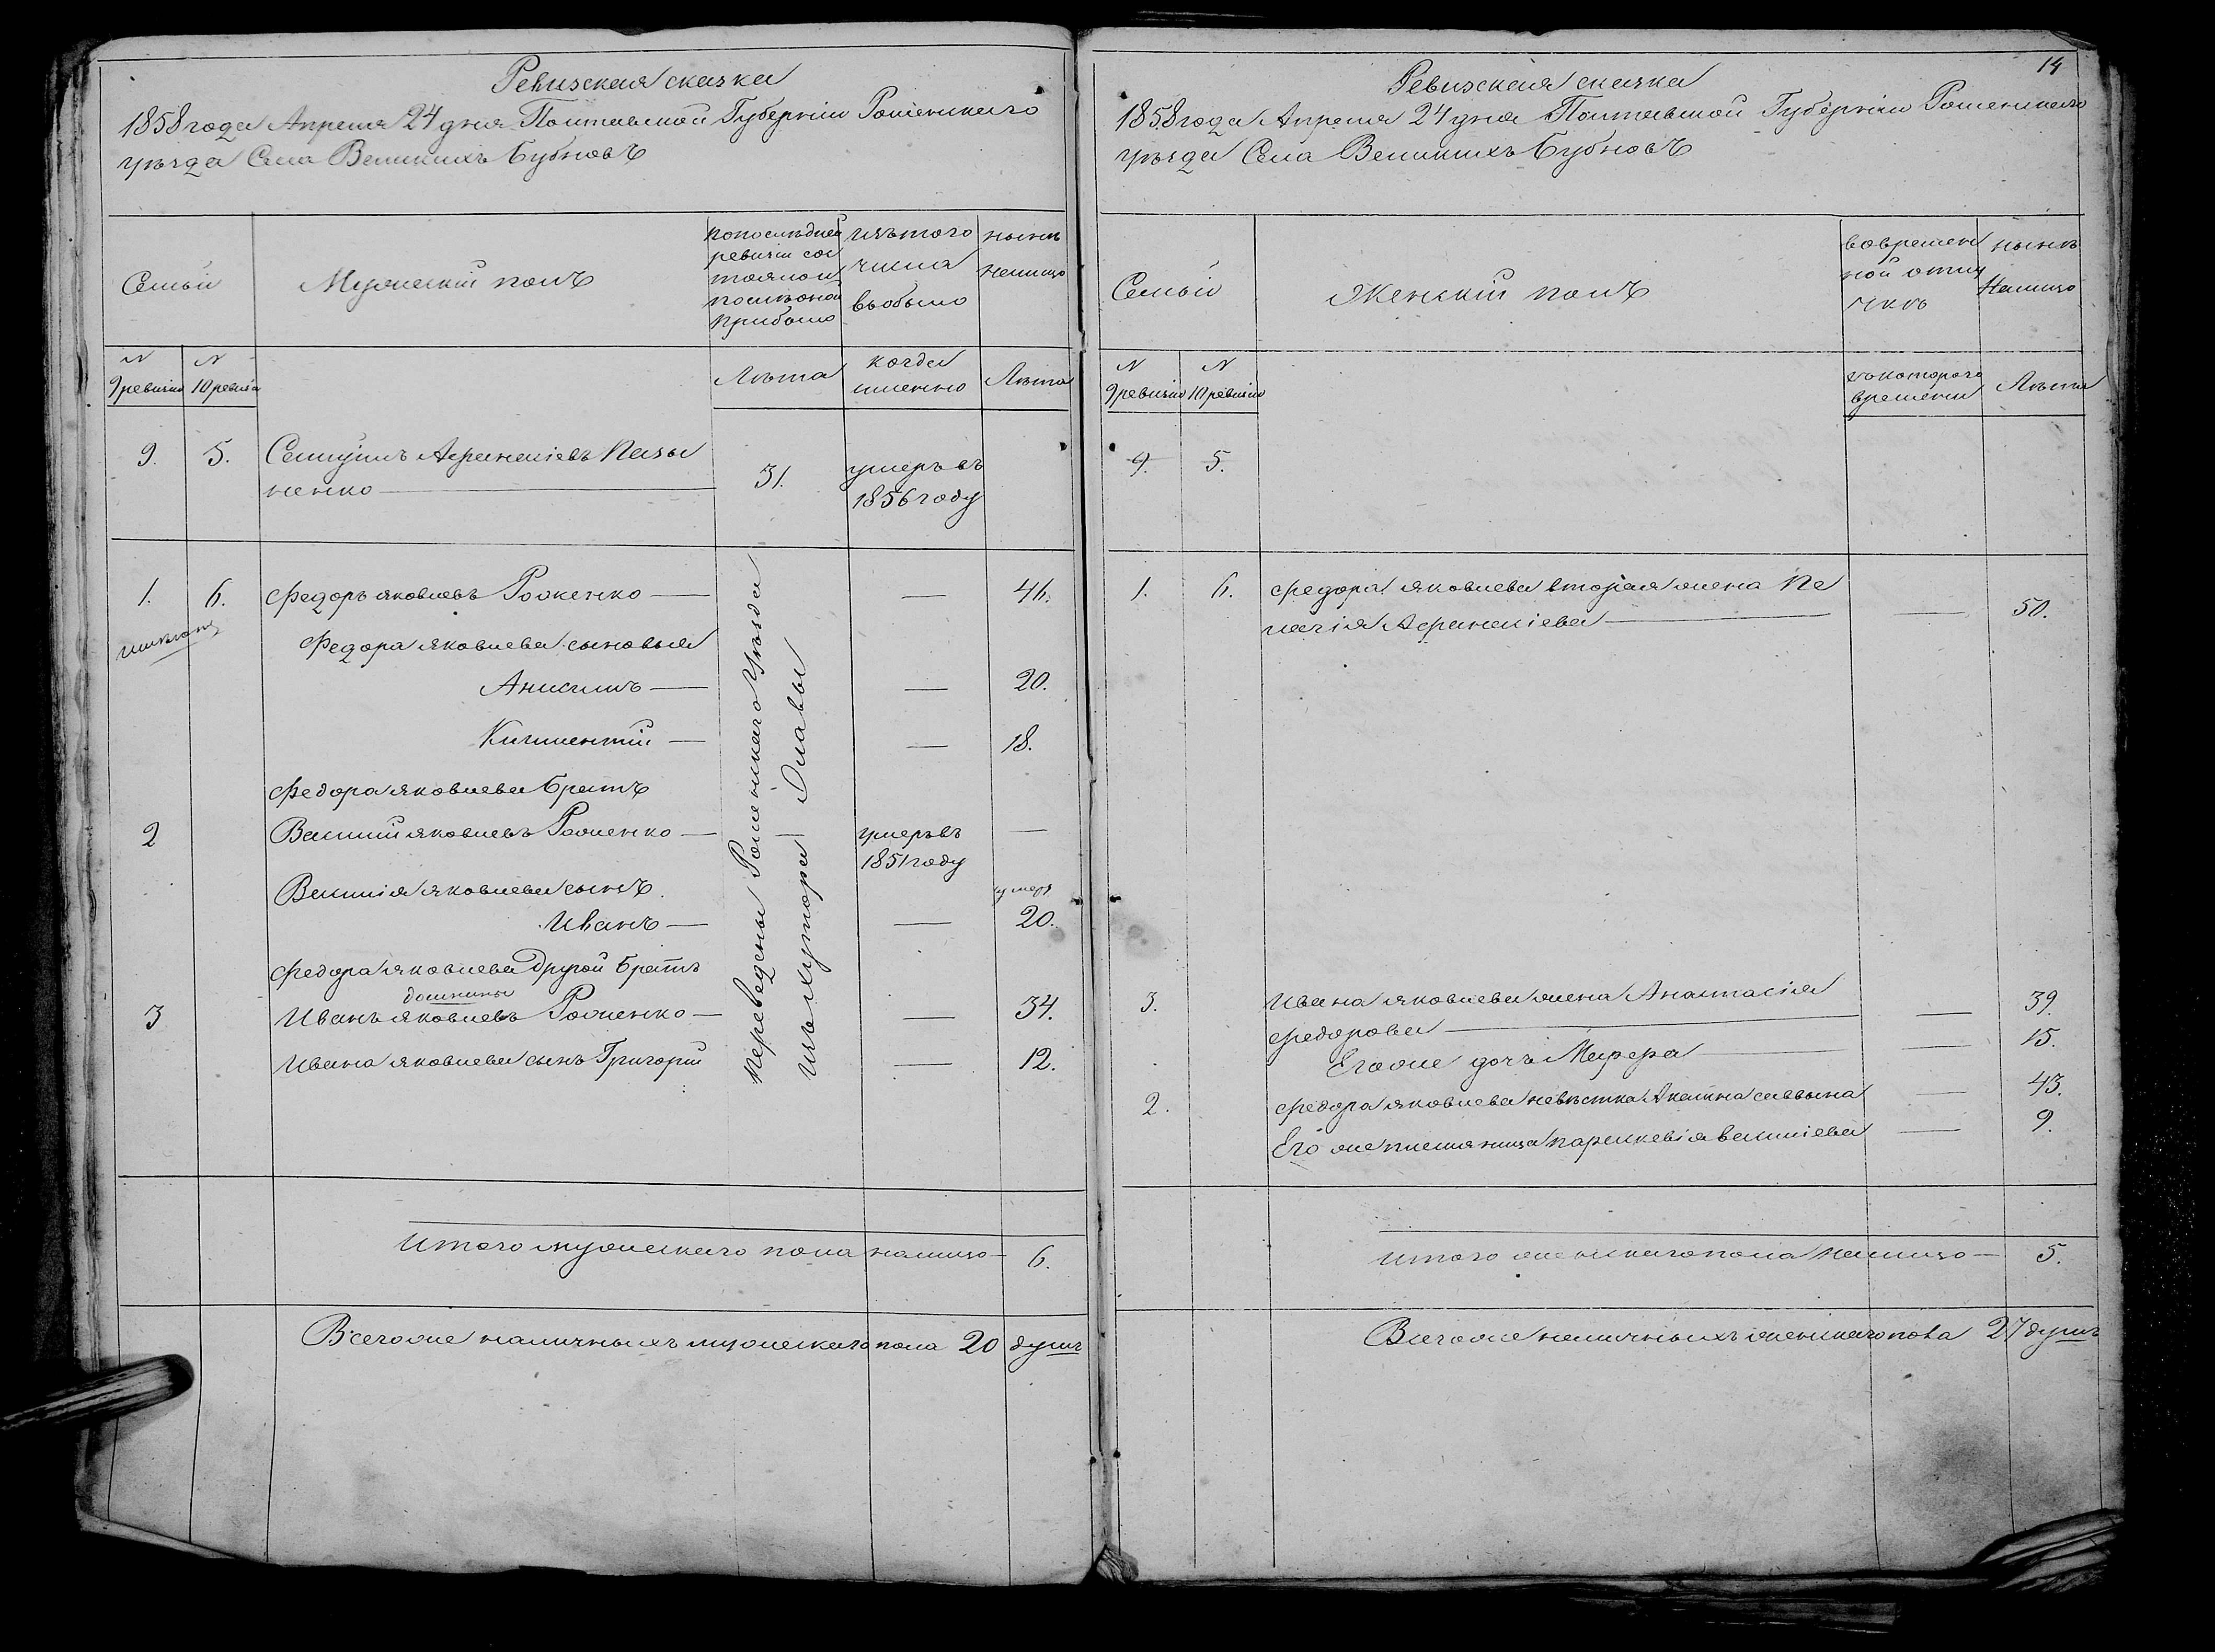 Ревизская сказка
1858 года Апреля 24 дня Полтавской Губерніи Роменскаго
уѣзда Села Великихъ Бубновъ
Семьи
Мужескій полъ
по последней
ревизіи сос
тояло и
после оной
прибыло
изъ того
числа
выбыло
нынѣ
налицо
N
9 ревизіи
N
10 ревизіи
Лѣта
когда
именно
Лѣта
9. 5. Самуилъ Афанасіевъ
ненко 31. умеръ въ
1856 году
1. 6. Федоръ Яковлевъ Роженко — 46.
Федора Яковлева сыновья
Анисимъ — 20.
Климентій — 18.
Федора Яковлева братъ
2 Василій Яковлевъ Роженко — умеръ въ —
1851 году
Василія Яковлева сынъ умеръ
Иванъ — 20.
Федора Яковлева другой братъ
3 Иванъ Яковлевъ Роженко — 34.
Ивана Яковлева сынъ Григорій — 12.
переведены Роменскаго Уезда
изъ хутора Олавы
Итого мужескаго пола налицо — 6.
Всего же наличныхъ мужескаго пола 20 душъ
14
Ревизская сказка
1858 года Апреля 24 дня Полтавской Губерніи Роменскаго
уѣзда Села Великихъ Бубновъ
Семьи
Женскій полъ
во времен
ной отлу
чкѣ
нынѣ
Налицо
N
9 ревизіи
N
10 ревизіи
съ котораго
времени
Лѣта
9. 5.
1. 6. Федора Яковлева вторая жена Пе
лагія Афанасіева — 50.
3. Ивана Яковлева жена Анастасія
Федорова — 39.
Его же дочь Марфа — 15.
2. Федора Яковлева невѣстка Акилина Саввина — 43.
Его же племяница Параскевія Василіева — 9.
Итого женскаго пола налицо — 5.
Всего же наличныхъ женскаго пола 27 душъ